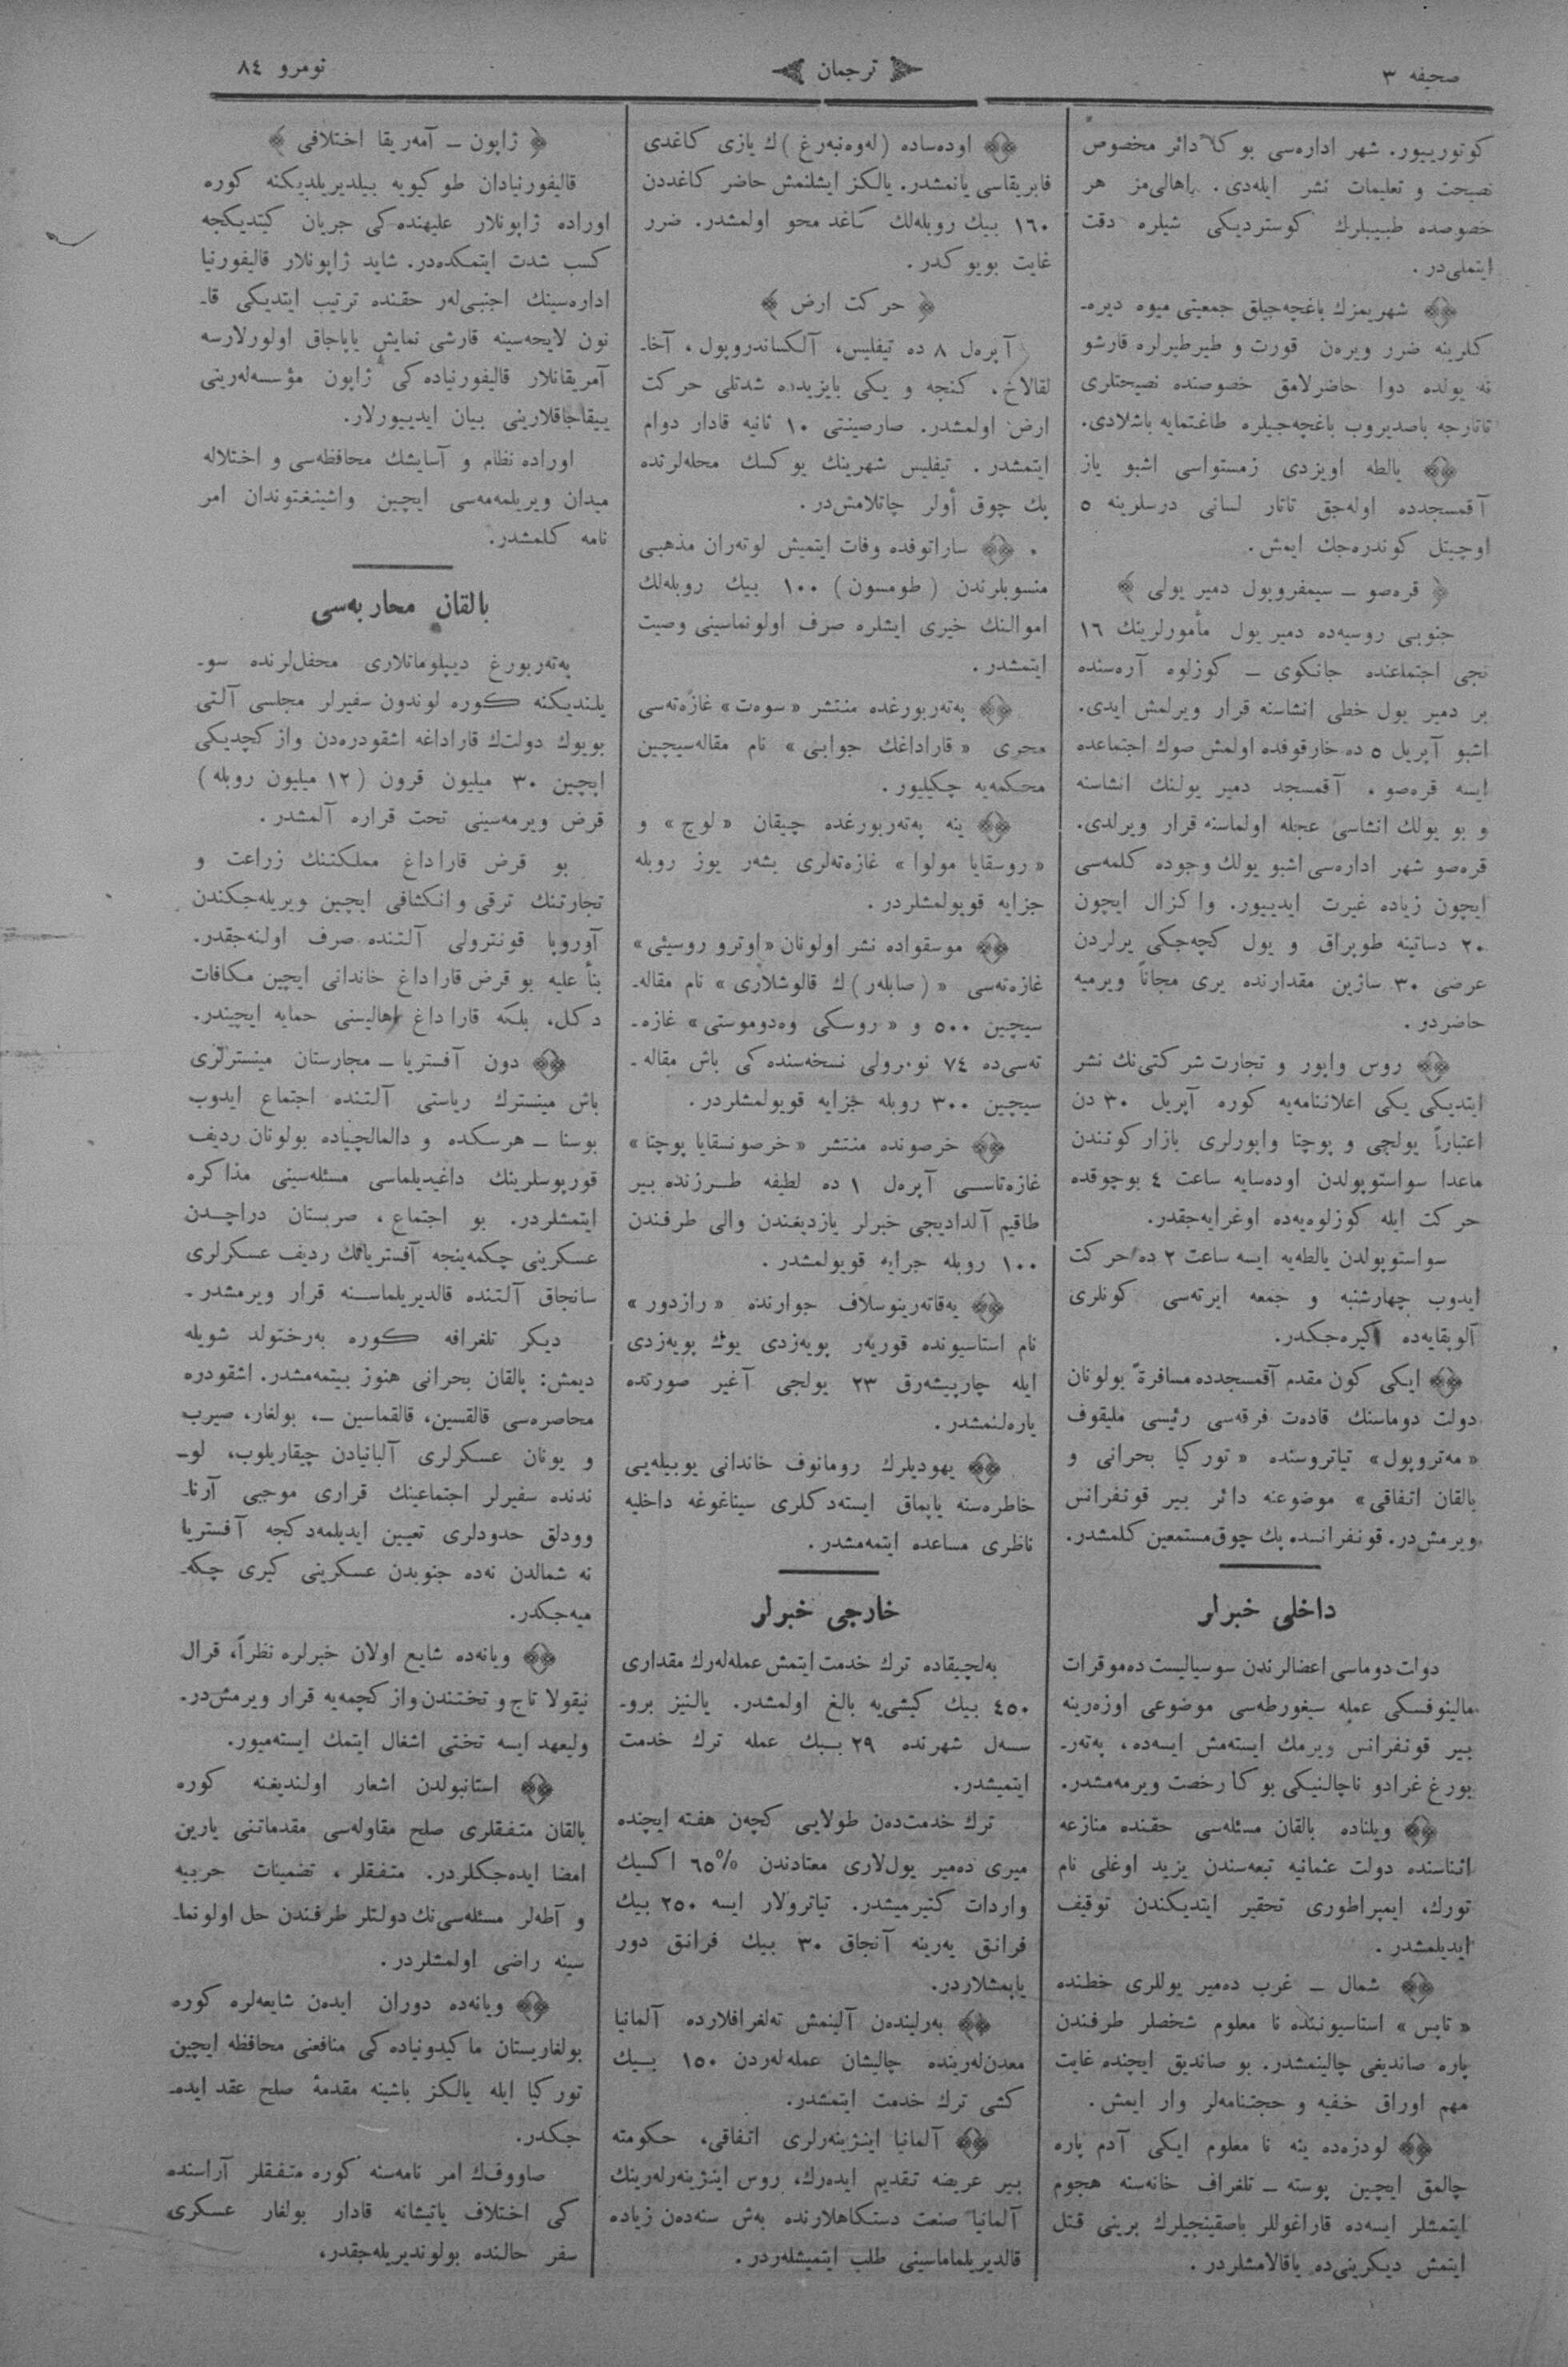 صحیفه ٣
ترجمان
نومرو ٨٤
كوتورییور. شهر اداره‌سی بو كا دائر مخصوص
نصیحت و تعلیمات نشر ایله‌دی. اهالی‌مز هر
خصوصده طبیبلرك كوستردیكی شیلره دقت
ایتملی‌در.
شهریمزك باغچه‌جیلق جمعیتی میوه دیره‌ـ
كلرینه ضرر ویره‌ن قورت و طیرطیرلره قارشو
نه یولده دوا حاضرلامق خصوصنده نصیحتلری
تاتارجه باصدیروب باغچه‌جیلره طاغتمایه باشلادی.
یالطه اویزدی زمستواسی اشبو یاز
آقمسجدده اوله‌جق تاتار لسانی درسلرینه ٥
اوچیتل كوندره‌جك ایمش.
﴿ قره‌صو ــ سیمفروپول دمیر یولی ﴾
جنوبی روسیه‌ده دمیر یول مأمورلرینك ١٦
نجی اجتماعنده جانكوی ــ كوزلوه آره‌سنده
بر دمیر یول خطی انشاسنه قرار ویرلمش ایدی.
اشبو آپریل ٥ ده خارقوفده اولمش صوك اجتماعده
ایسه قره‌صو، آقمسجد دمیر یولنك انشاسنه
و بو یولك انشاسی عجله اولماسنه قرار ویرلدی.
قره‌صو شهر اداره‌سی اشبو یولك وجوده كلمه‌سی
ایچون زیاده غیرت ایدییور. واكزال ایچون
٢٠ دساتینه طوپراق و یول كچه‌جكی یرلردن
عرضی ٣٠ سازین مقدارنده یری مجاناً ویرمیه
حاضردر.
روس واپور و تجارت شركتی‌نك نشر
ایتدیكی یكی اعلاننامه‌یه كوره آپریل ٣٠ دن
اعتباراً یولجی و پوچتا واپورلری بازار كونندن
ماعدا سواستوپولدن اوده‌سایه ساعت ٤ بوچوقده
حركت ایله كوزلوه‌یه‌ده اوغرایه‌جقدر.
سواستوپولدن یالطه‌یه ایسه ساعت ٢ ده حركت
ایدوب چهارشنبه و جمعه ایرته‌سی كونلری
آلوبقایه‌ده كیره‌جكدر.
ایكی كون مقدم آقمسجدده مسافرةً بولونان
دولت دوماسنك قاده‌ت فرقه‌سی رئیسی ملیقوف
«مه‌تروپول» تیاتروسنده «توركیا بحرانی و
بالقان اتفاقی» موضوعنه دائر بیر قونفرانس
ویرمش‌در. قونفرانسده پك چوق مستمعین كلمشدر.
داخلی خبرلر
دولت دوماسی اعضالرندن سوسیالیست ده‌موقرات
مالینوفسكی عمله سیغورطه‌سی موضوعی اوزه‌رینه
بیر قونفرانس ویرمك ایسته‌مش ایسه‌ده، په‌ته‌رـ
بورغ غرادوناچالنیكی بو كا رخصت ویرمه‌مشدر.
ویلناده بالقان مسئله‌سی حقنده منازعه
اثناسنده دولت عثمانیه تبعه‌سندن یزید اوغلی نام
تورك، ایمپراطوری تحقیر ایتدیكندن توقیف
ایدیلمشدر.
شمال ــ غرب ده‌میر یوللری خطنده
«تاپس» استاسیونئده نا معلوم شخصلر طرفندن
پاره صاندیغی چالینمشدر. بو صاندیق ایچنده غایت
مهم اوراق خفیه و حجتنامه‌لر وار ایمش.
لودزه‌ده ینه نا معلوم ایكی آدم پاره
چالمق ایچین پوسته ــ تلغراف خانه‌سنه هجوم
ایتمشلر ایسه‌ده قاراغوللر باصقینجیلرك برینی قتل
ایتمش دیكرینی‌ده یاقالامشلردر.
اوده‌ساده (له‌وه‌نبه‌رغ)ك یازی كاغدی
فابریقاسی یانمشدر. یالكز ایشلنمش حاضر كاغددن
١٦٠ بیك روبله‌لك كاغد محو اولمشدر. ضرر
غایت بویوكدر.
﴿ حركت ارض ﴾
آپره‌ل ٨ ده تیفلیس، آلكساندروپول، آخاـ
لقالاخ، كنجه و یكی بایزیدده شدتلی حركت
ارض اولمشدر. صارصینتی ١٠ ثانیه قادار دوام
ایتمشدر. تیفلیس شهرینك یوكسك محله‌لرنده
پك چوق أولر چاتلامش‌در.
ساراتوفده وفات ایتمیش لوته‌ران مذهبی
منسوبلرندن (طومسون) ١٠٠ بیك روبله‌لك
اموالنك خیری ایشلره صرف اولونماسینی وصیت
ایتمشدر.
په‌ته‌ربورغده منتشر «سوه‌ت» غازه‌ته‌سی
محرری «قاراداغك جوابی» نام مقاله‌سیچین
محكمه‌یه چكیلیور.
ینه په‌ته‌ربورغده چیقان «لوچ» و
«روسقایا مولوا» غازه‌ته‌لری بشه‌ر یوز روبله
جزایه قویولمشلردر.
موسقواده نشر اولونان «اوترو روسیئی»
غازه‌ته‌سی «(صابله‌ر)ك قالوشلاری» نام مقاله‌ـ
سیچین ٥٠٠ و «روسكی وه‌دوموستی» غازه‌ـ
ته‌سی‌ده ٧٤ نومرولی نسخه‌سنده‌كی باش مقاله‌ـ
سیچین ٣٠٠ روبله جزایه قویولمشلردر.
خرصونده منتشر «خرصونسقایا پوچتا»
غازه‌تاسی آپره‌ل ١ ده لطیفه طرزنده بیر
طاقیم آلدادیجی خبرلر یازدیغندن والی طرفندن
١٠٠ روبله جزایه قویولمشدر.
یه‌قاته‌رینوسلاف جوارنده «رازدور»
نام استاسیونده قوریه‌ر پویه‌زدی یوك پویه‌زدی
ایله چارپیشه‌رق ٢٣ یولجی آغیر صورتده
یاره‌لنمشدر.
یهودیلرك رومانوف خاندانی یوبیله‌یی
خاطره‌سنه یاپماق ایسته‌دكلری سیناغوغه داخلیه
ناظری مساعده ایتمه‌مشدر.
خارجی خبرلر
به‌لچیقاده ترك خدمت ایتمش عمله‌له‌رك مقداری
٤٥٠ بیك كیشی‌یه بالغ اولمشدر. یالنیز بروـ
سسه‌ل شهرنده ٢٩ بیك عمله ترك خدمت
ایتمیشدر.
ترك خدمت‌ده‌ن طولایی كچه‌ن هفته ایچنده
میری ده‌میر یول‌لاری معتادندن ٦٥% اكسیك
واردات كتیرمیشدر. تیاترولار ایسه ٢٥٠ بیك
فرانق یه‌رینه آنجاق ٣٠ بیك فرانق دور
یاپمشلاردر.
به‌رلینده‌ن آلینمش ته‌لغرافلارده آلمانیا
معدن‌له‌رینده چالیشان عمله‌له‌ردن ١٥٠ بیك
كشی ترك خدمت ایتمشدر.
آلمانیا اینژینه‌رلری اتفاقی، حكومته
بیر عریضه تقدیم ایده‌رك، روس اینژینه‌رله‌رینك
آلمانیا صنعت دستكاهلارنده به‌ش سنه‌ده‌ن زیاده
قالدیریلماماسینی طلب ایتمیشله‌ردر.
﴿ ژاپون ــ آمه‌ریقا اختلافی ﴾
قالیفورنیادان طوكیویه بیلدیریلدیكنه كوره
اوراده ژاپونلار علیهنده‌كی جریان كیتدیكجه
كسب شدت ایتمكده‌در. شاید ژاپونلار قالیفورنیا
اداره‌سینك اجنبی‌لر حقنده ترتیب ایتدیكی قاـ
نون لایحه‌سینه قارشی نمایش یاپاجاق اولورلارسه
آمریقانلار قالیفورنیاده‌كی ژاپون مؤسسه‌له‌رینی
ییقاجاقلارینی بیان ایدییورلار.
اوراده نظام و آسایشك محافظه‌سی و اختلاله
میدان ویریلمه‌مه‌سی ایچین واشینغتوندان امر
نامه كلمشدر.
بالقان محاربه‌سی
په‌ته‌ربورغ دیپلوماتلاری محفل‌لرنده سوـ
یلندیكنه كوره لوندون سفیرلر مجلسی آلتی
بویوك دولتك قاراداغه اشقودره‌دن واز كچدیكی
ایچین ٣٠ میلیون قرون (١٢ میلیون روبله)
قرض ویرمه‌سینی تحت قراره آلمشدر.
بو قرض قاراداغ مملكتنك زراعت و
تجارتنك ترقی و انكشافی ایچین ویریله‌جكندن
آوروپا قونترولی آلتنده صرف اولنه‌جقدر.
بنأ علیه بو قرض قاراداغ خاندانی ایچین مكافات
دكل، بلكه قاراداغ اهالیسنی حمایه ایچیندر.
دون آفستریا ــ مجارستان مینسترلری
باش مینسترك ریاستی آلتنده اجتماع ایدوب
بوسنا ــ هرسكده و دالمالچیاده بولونان ردیف
قورپوسلرینك داغیدیلماسی مسئله‌سینی مذاكره
ایتمشلردر. بو اجتماع، صربستان دراچدن
عسكرینی چكمه‌ینجه آفستریانك ردیف عسكرلری
سانجاق آلتنده قالدیریلماسنه قرار ویرمشدر.
دیكر تلغرافه كوره به‌رختولد شویله
دیمش: بالقان بحرانی هنوز بیتمه‌مشدر. اشقودره
محاصره‌سی قالقسین، قالقماسین ــ، بولغار، صیرب
و یونان عسكرلری آلبانیادن چیقاریلوب، لوـ
ندنده سفیرلر اجتماعینك قراری موجبی آرناـ
وودلق حدودلری تعیین ایدیلمه‌دكجه آفستریا
نه شمالدن نه‌ده جنوبدن عسكرینی كیری چكه‌ـ
میه‌جكدر.
ویانه‌ده شایع اولان خبرلره نظراً، قرال
نیقولا تاج و تختندن واز كچمه‌یه قرار ویرمش‌در.
ولیعهد ایسه تختی اشغال ایتمك ایسته‌میور.
استانبولدن اشعار اولندیغنه كوره
بالقان متفقلری صلح مقاوله‌سی مقدماتنی یارین
امضا ایده‌جكلردر. متفقلر، تضمینات حربیه
و آطه‌لر مسئله‌سی‌نك دولتلر طرفندن حل اولونماـ
سینه راضی اولمشلردر.
ویانه‌ده دوران ایده‌ن شایعه‌لره كوره
بولغارستان ماكیدونیاده‌كی منافعنی محافظه ایچین
توركیا ایله یالكز باشینه مقدمهٔ صلح عقد ایده‌ـ
جكدر.
صاووفك امر نامه‌سنه كوره متفقلر آراسنده
كی اختلاف یاتیشانه قادار بولغار عسكری
سفر حالنده بولوندیریله‌جقدر.